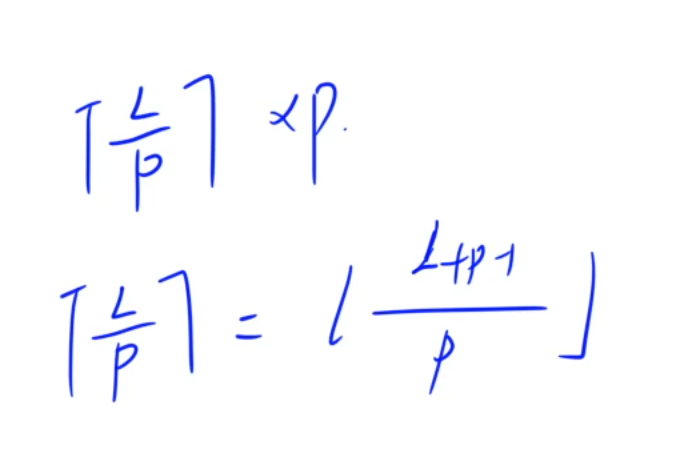 ⌈L/p⌉ × p.
⌈L/p⌉ = ⌊(L+p-1)/p⌋